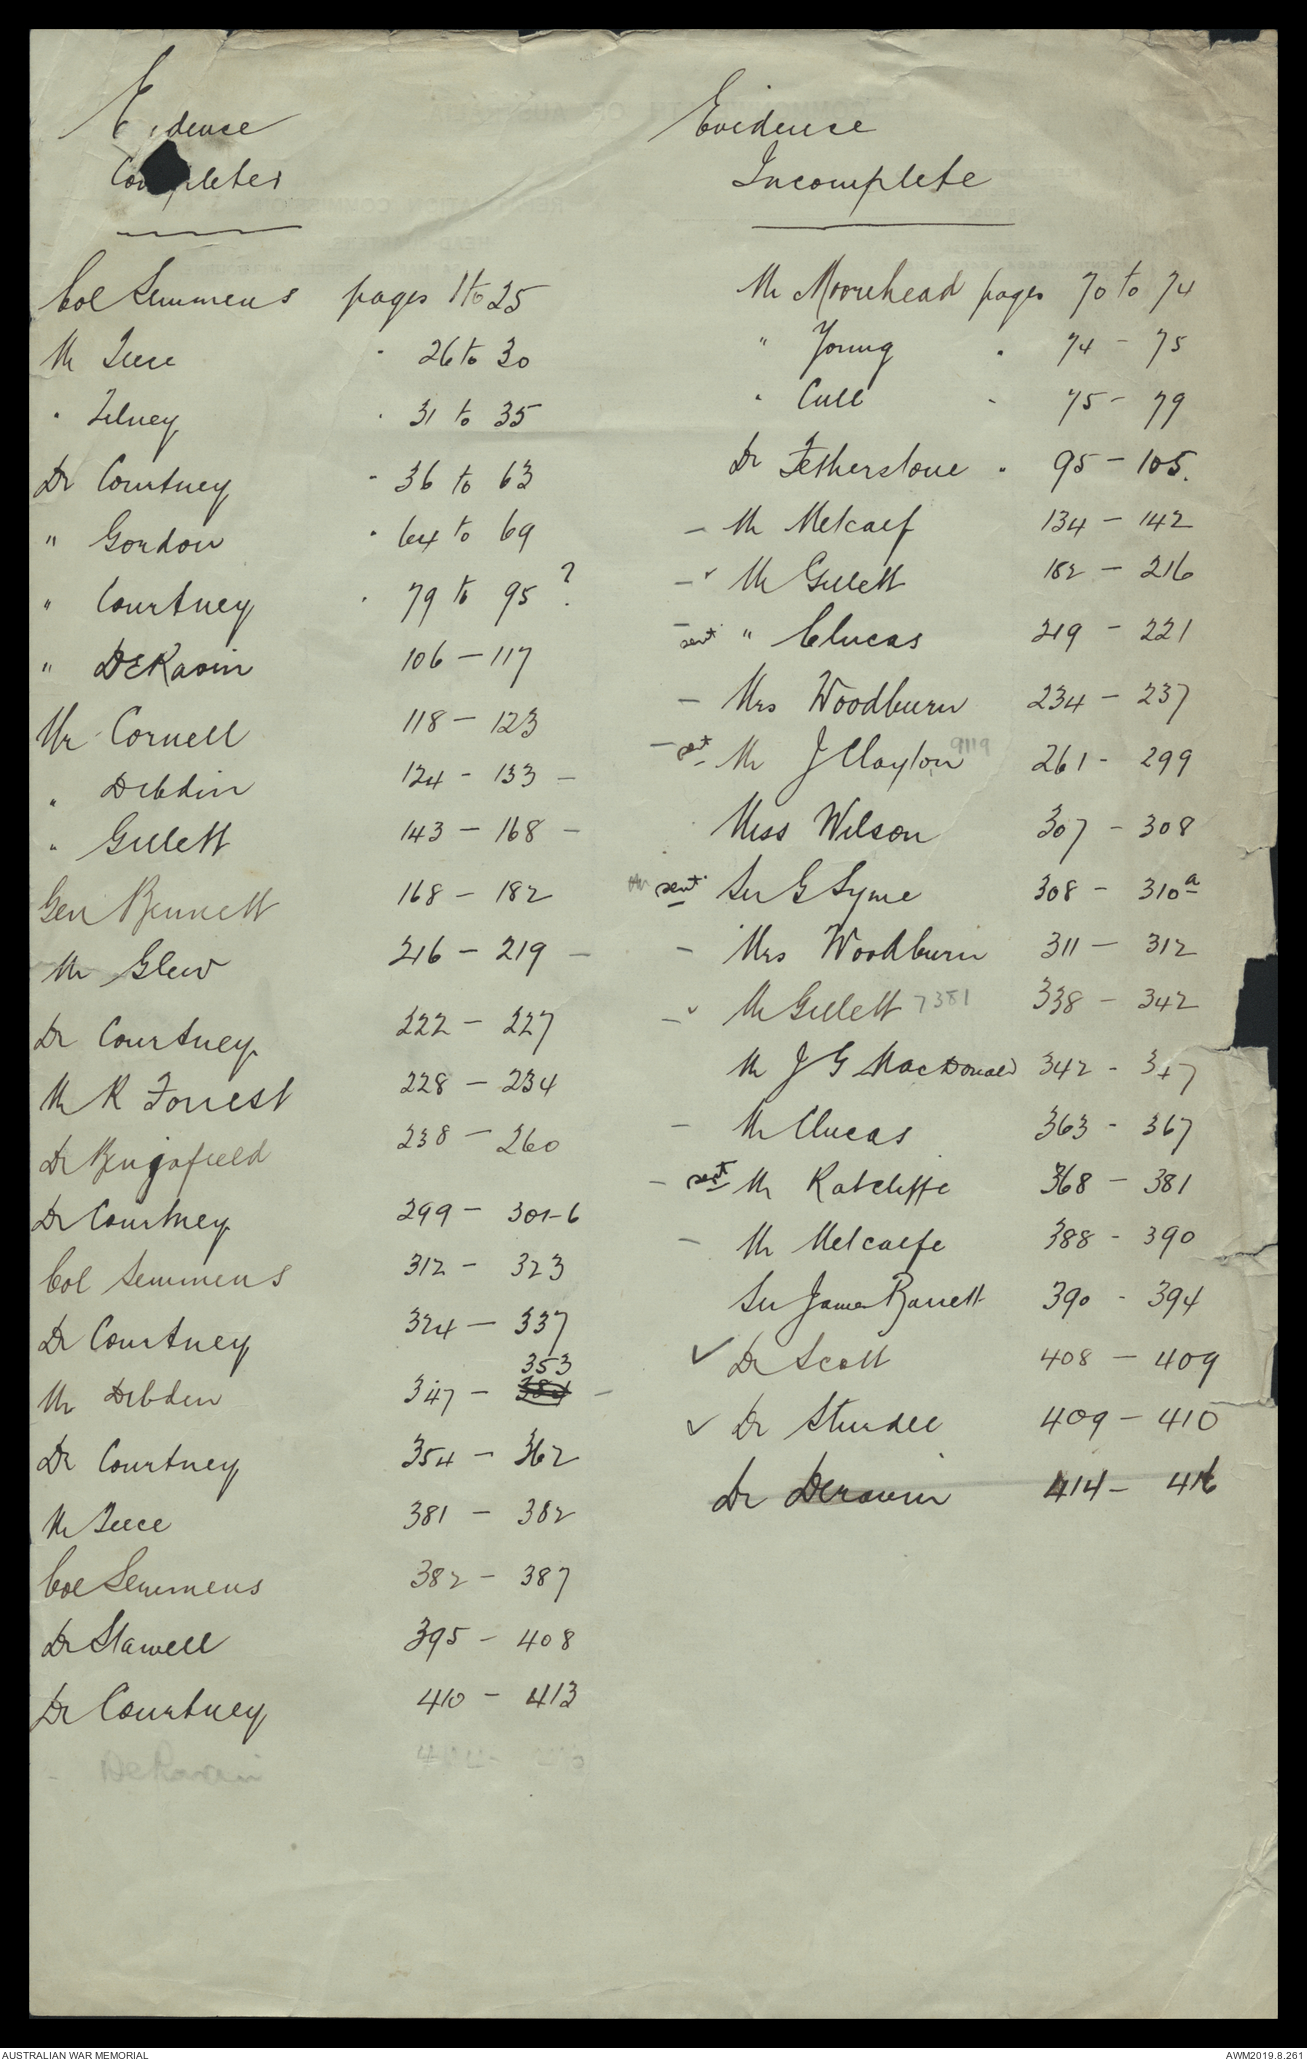 Evidence
Completed
Col Semmens pages 1 to 25
Mr Teece " 26 to 30
" Tilney " 31 to 35
Dr Courtney " 36 to 63
" Gordon " 64 to 69
" Courtney " 79 to 95 ?
" DeRavin 106 - 117
Mr Cornell 118 - 123
" Dibdin 124 - 133 -
" Gillett 143 - 168 -
Gen Bennett 168 - 182
Mr Glew 216 - 219 -
Dr Courtney 222 - 227
Mr R Forrest 228 - 234
Dr Bengafield 238 - 260
Dr Courtney 299 - 301-6
Col Semmens 312 - 323
Dr Courtney 324 - 337
353
Mr Dibden 347 - -
Dr Courtney 354 - 362
Mr Teece 381 - 382
Col Semmens 382 - 387
Dr Stawell 395 - 408
Dr Courtney 410 - 413
- DeRavin
Evidence
Incomplete
Mr Moorehead pages 70 to 74
" Young " 74 - 75
" Cull " 75 - 79
Dr Fetherstone " 95 - 105.
- Mr Metcalf 134 - 142
- ✓ Mr Gillett 182 - 216
- sent " Clucas 219 - 221
- Mrs Woodburn 234 - 237
- sent Mr J Clayton 9119 261 - 299
Miss Wilson 307 - 308
sent Sir G Syme 308 - 310a
- Mrs Woodburn 311 - 312
- ✓ Mr Gillett 7381 338 - 342
Mr J G MacDonald 342 - 347
- Mr Clucas 363 - 367
- sent Mr Ratcliffe 368 - 381
- Mr Metcalfe 388 - 390
Sir James Barrett 390 - 394
✓ Dr Scott 408 - 409
✓ Dr Sturdee 409 - 410
Dr Deravin 414 - 416
AUSTRALIAN WAR MEMORIAL
AWM2019.8.261